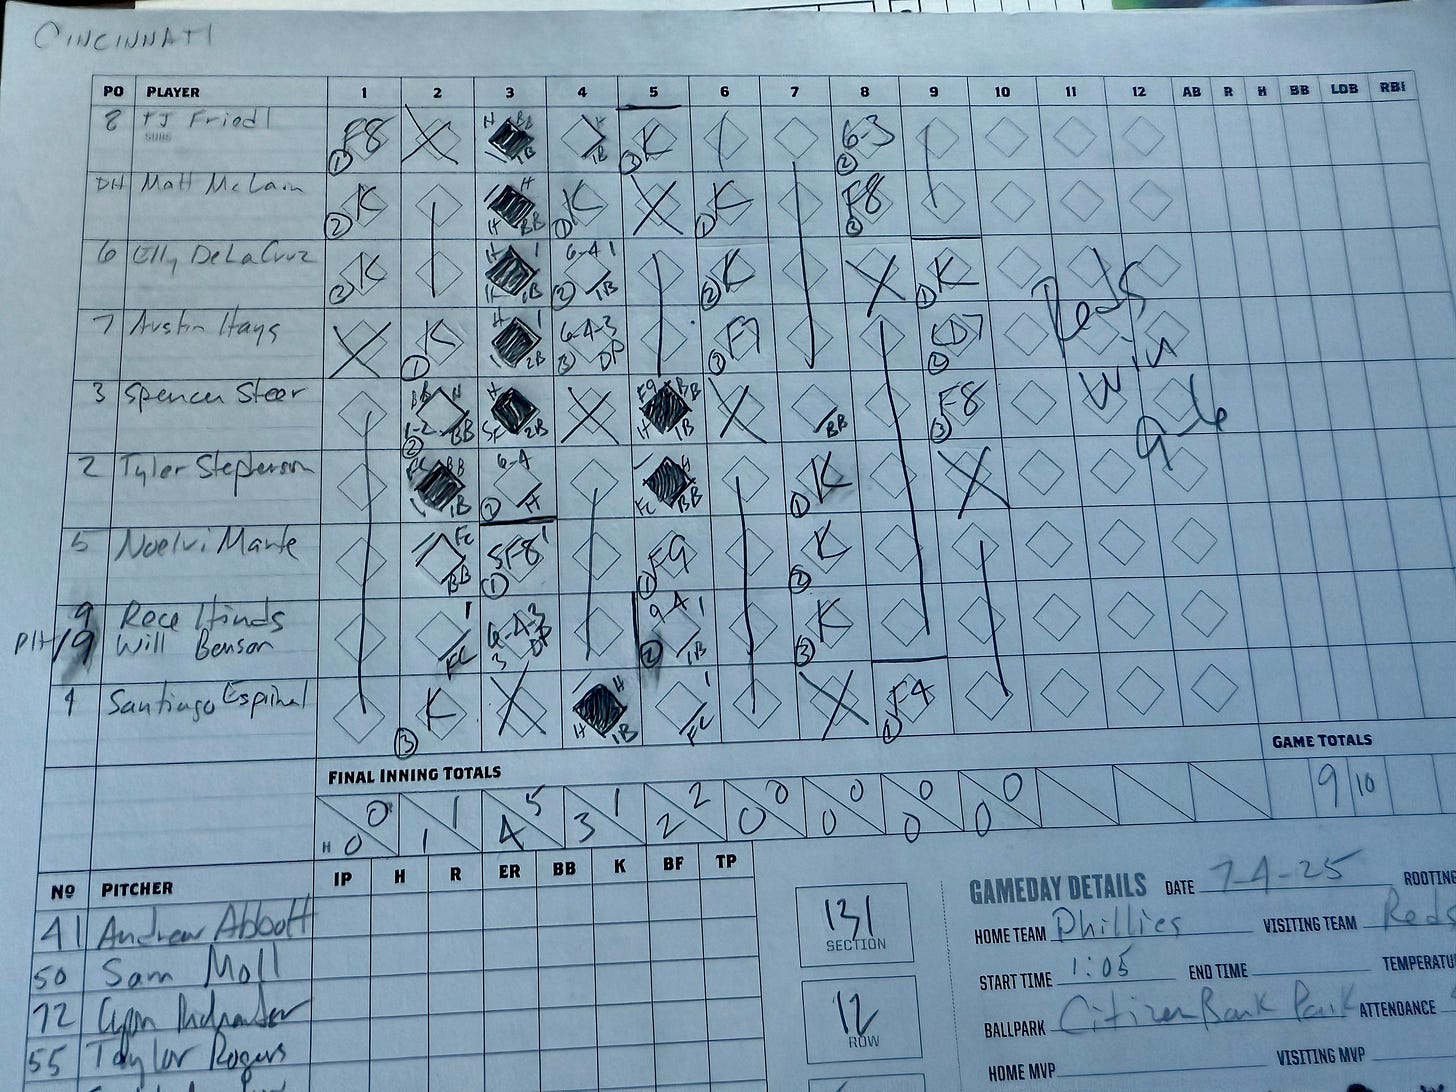 CINCINNATI
PO PLAYER 1 2 3 4 5 6 7 8 9 10 11 12 AB R H BB LOB RBI
8 TJ Friedl F8 ① H BB 1B H 1B K ③ 6-3 ②
SUBS
DH Matt McLain K ② H H BB K ① K ① F8 ③
6 Elly DeLaCruz K ③ H 1 K 1B 6-4 1 ② 1B K ② K ①
7 Austin Hays K ① H 1 2B 6-4-3 ③ DP F7 ③ ②
3 Spencer Steer BB H 1-2 BB ② H SF 2B F9 BB H 1B BB F8 ③
2 Tyler Stephenson FC BB 1B 6-4 ② H H FC BB K ①
5 Noelvi Marte FC BB SF8 1 ① F9 ① K ②
9 Rece Hinds 1 FC 6-4-3 3 DP 9 4 1 ② 1B K ③
PH/9 Will Benson
4 Santiago Espinal K ③ H H 1B 1 FC F4 ①
Reds
Win
9-6
FINAL INNING TOTALS GAME TOTALS
H 0 0 1 1 4 5 3 1 2 2 0 0 0 0 0 0 0 0 9 10
No PITCHER IP H R ER BB K BF TP
41 Andrew Abbott
50 Sam Moll
72
55 Taylor Rogers
131
SECTION
12
ROW
GAMEDAY DETAILS DATE 7-4-25 ROOTING
HOME TEAM Phillies VISITING TEAM Reds
START TIME 1:05 END TIME TEMPERATU
BALLPARK Citizen Bank Park ATTENDANCE
HOME MVP VISITING MVP